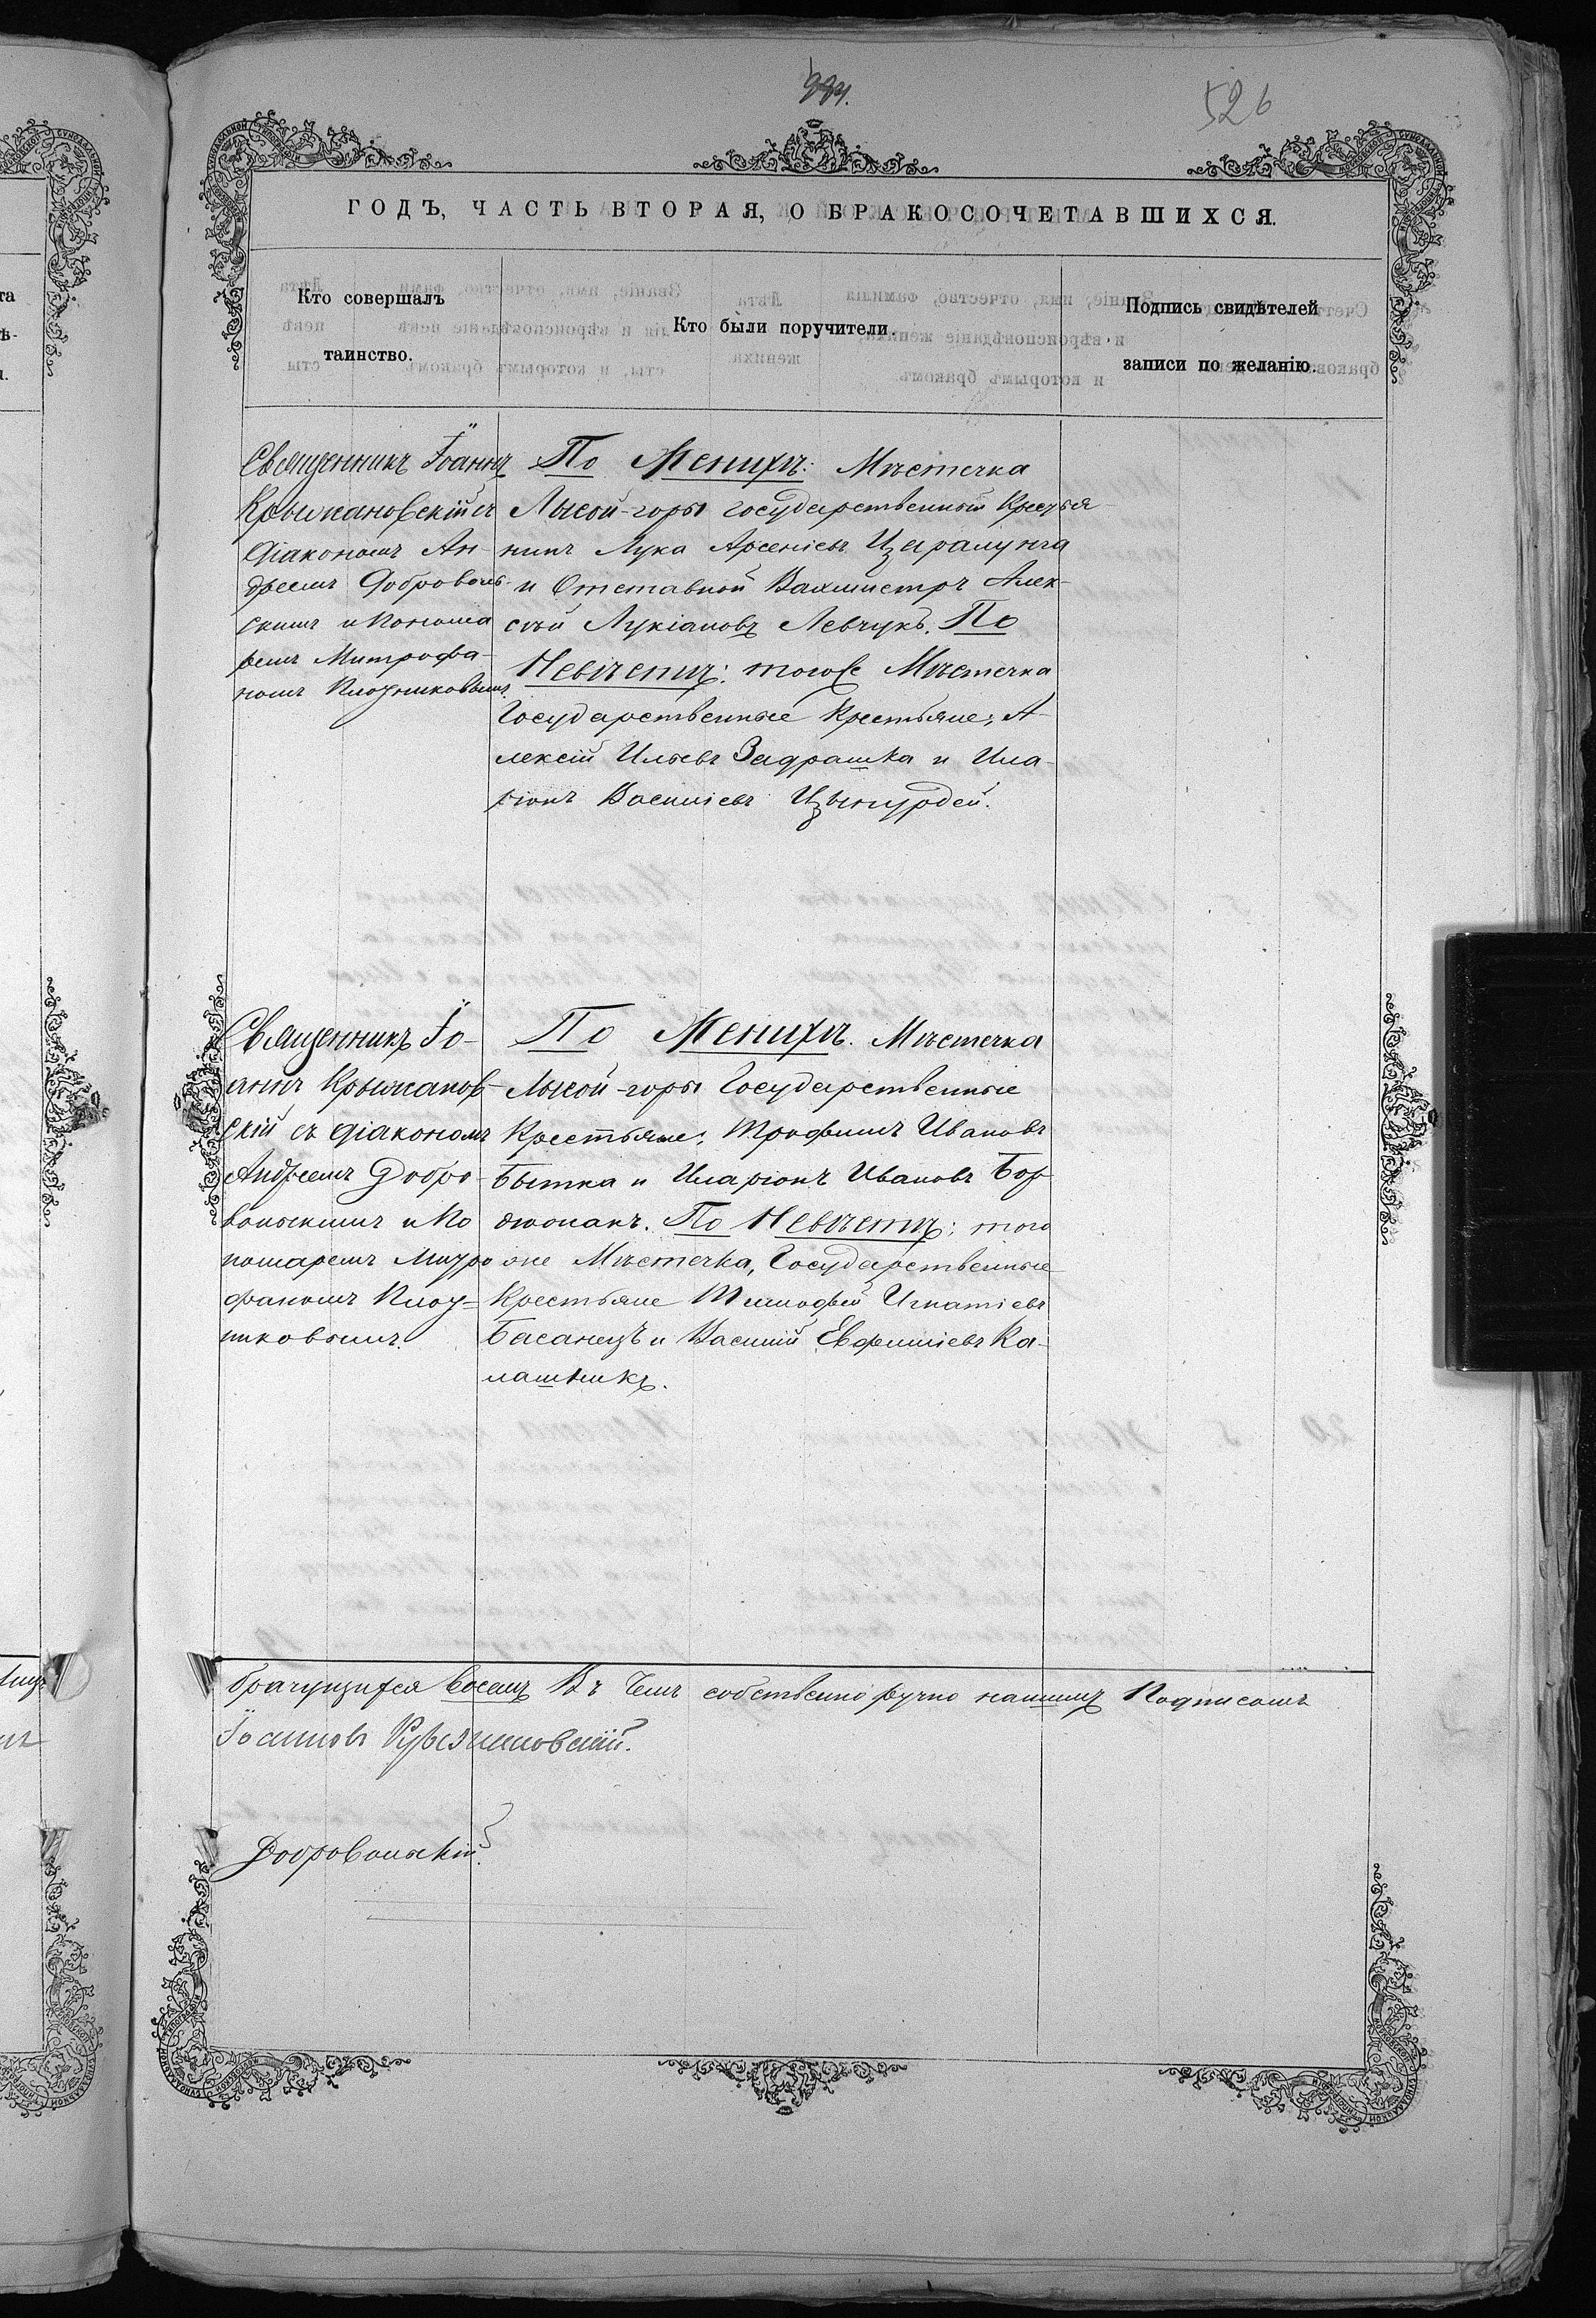 526
ГОДЪ, ЧАСТЬ ВТОРАЯ, О БРАКОСОЧЕТАВШИХСЯ.
Кто совершалъ
таинство.
Кто были поручители.
Подпись свидѣтелей
записи по желанію.
Священникъ Іоаннъ
Крыжановскій съ
Діакономъ Ан-
дреемъ Доброволь-
скимъ и Понома
ремъ Митрофа-
номъ Плотниковымъ.
По Женихѣ: Мѣстечка
Лысой-горы государственный Крестья-
нинъ Лука Арсеніевъ Царалунга
и Отставной Вахмистръ Алек-
сѣй Лукіановъ Левчукъ. По
Невѣстѣ: тогоже Мѣстечка
Государственные Крестьяне; А-
лексій Ильевъ Задрашка и Ила-
ріонъ Василіевъ Цынурдей.
Священникъ Іо-
аннъ Крыжанов-
скій съ Діакономъ
Андреемъ Добро-
вольскимъ и По
номаремъ Митро
фаномъ Плот-
никовымъ.
По Женихѣ. Мѣстечка
Лысой-горы Государственные
Крестьяне: Трофимъ Ивановъ
Бытка и Иларіонъ Ивановъ Бор
дюжанъ. По Невѣстѣ: того
же Мѣстечка, Государственные
Крестьяне Тимофей Игнатіевъ
Басанецъ и Василій Евфиміевъ Ка-
лашникъ.
брачущихся восемъ Въ чемъ собственно ручно нашимъ Подписомъ
Іоаннъ Крыжановскій.
Добровольскій.